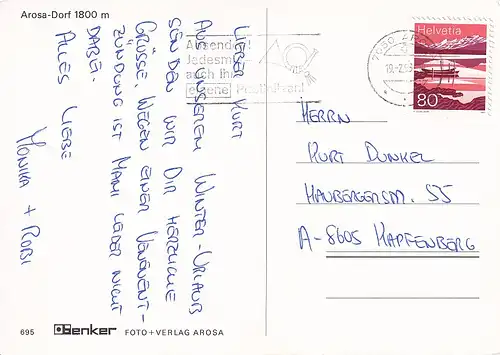 Arosa-Dorf 1800 m
LIEBER KURT
AUS UNSEREM WINTER-URLAUB
SENDEN WIR DIR HERZLICHE
GRÜSSE. WEGEN EINER VENENENT-
ZÜNDUNG IST MAMI LEIDER NICHT
DABEI.
ALLES LIEBE
MONIKA + ROBI
Absender!
Jedesmal
auch Ihre
eigene Postleitzahl
7050
18.-2.
Helvetia
80
HERRN
KURT DUNKEL
HAUBERGERSTR. 55
A-8605 KAPFENBERG
695
Benker FOTO+VERLAG AROSA